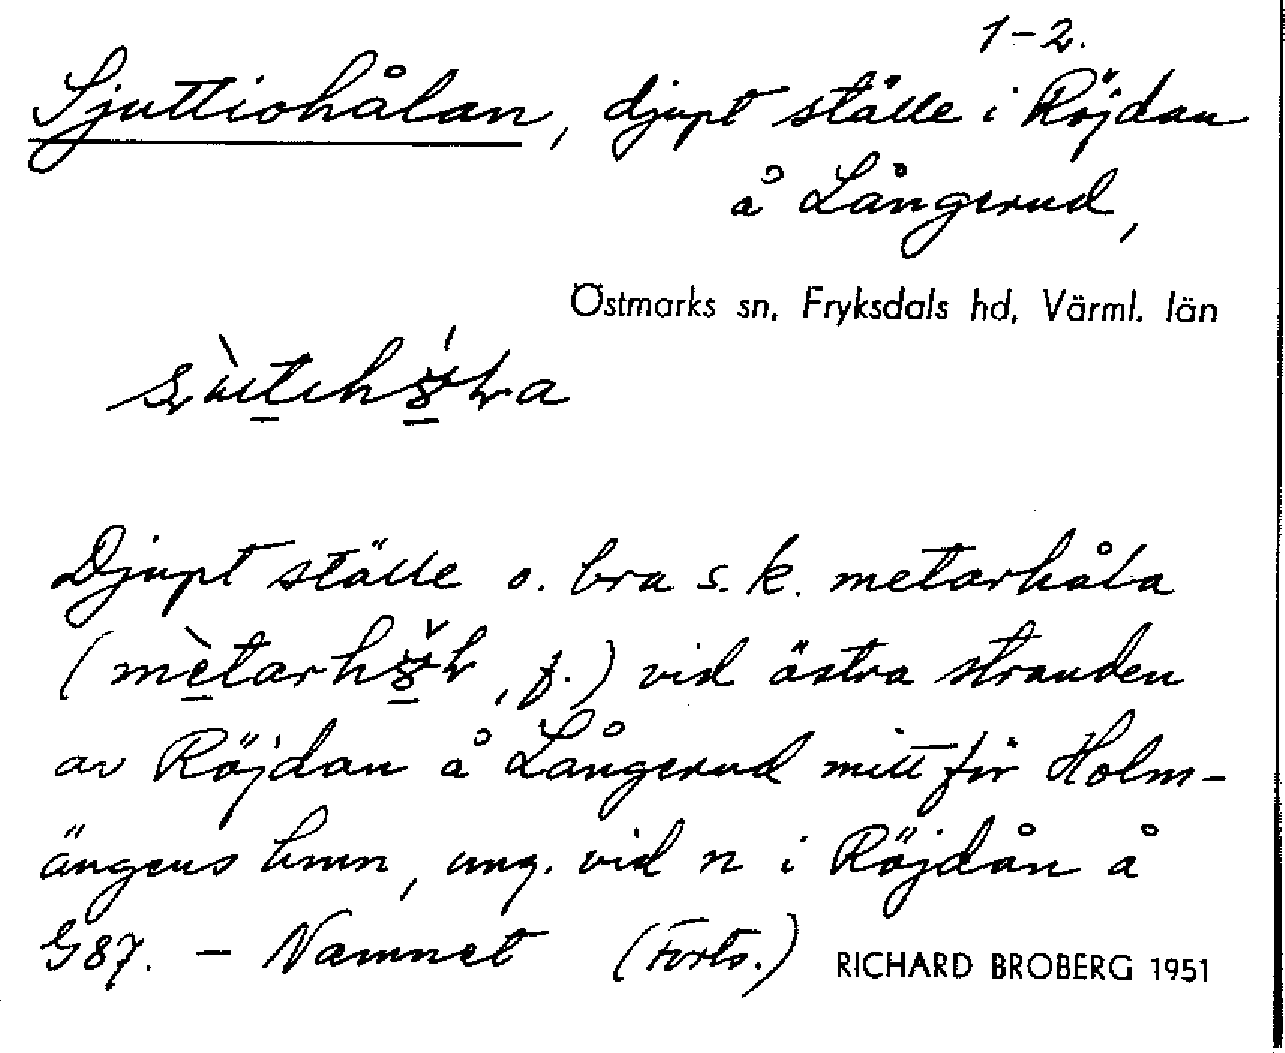 1-2.
Sjuttiohålan, djupt ställe i Röjdan
å Långerud,
Östmarks sn, Fryksdals hd, Värml. län
Djupt ställe o. bra s.k. metarhåla
(mètarh , f.) vid östra stranden
av Röjdan å Långerud mitt för Holm-
ängens hmn, ung. vid n i Röjdån å
G87. - Namnet (Forts.) RICHARD BROBERG 1951